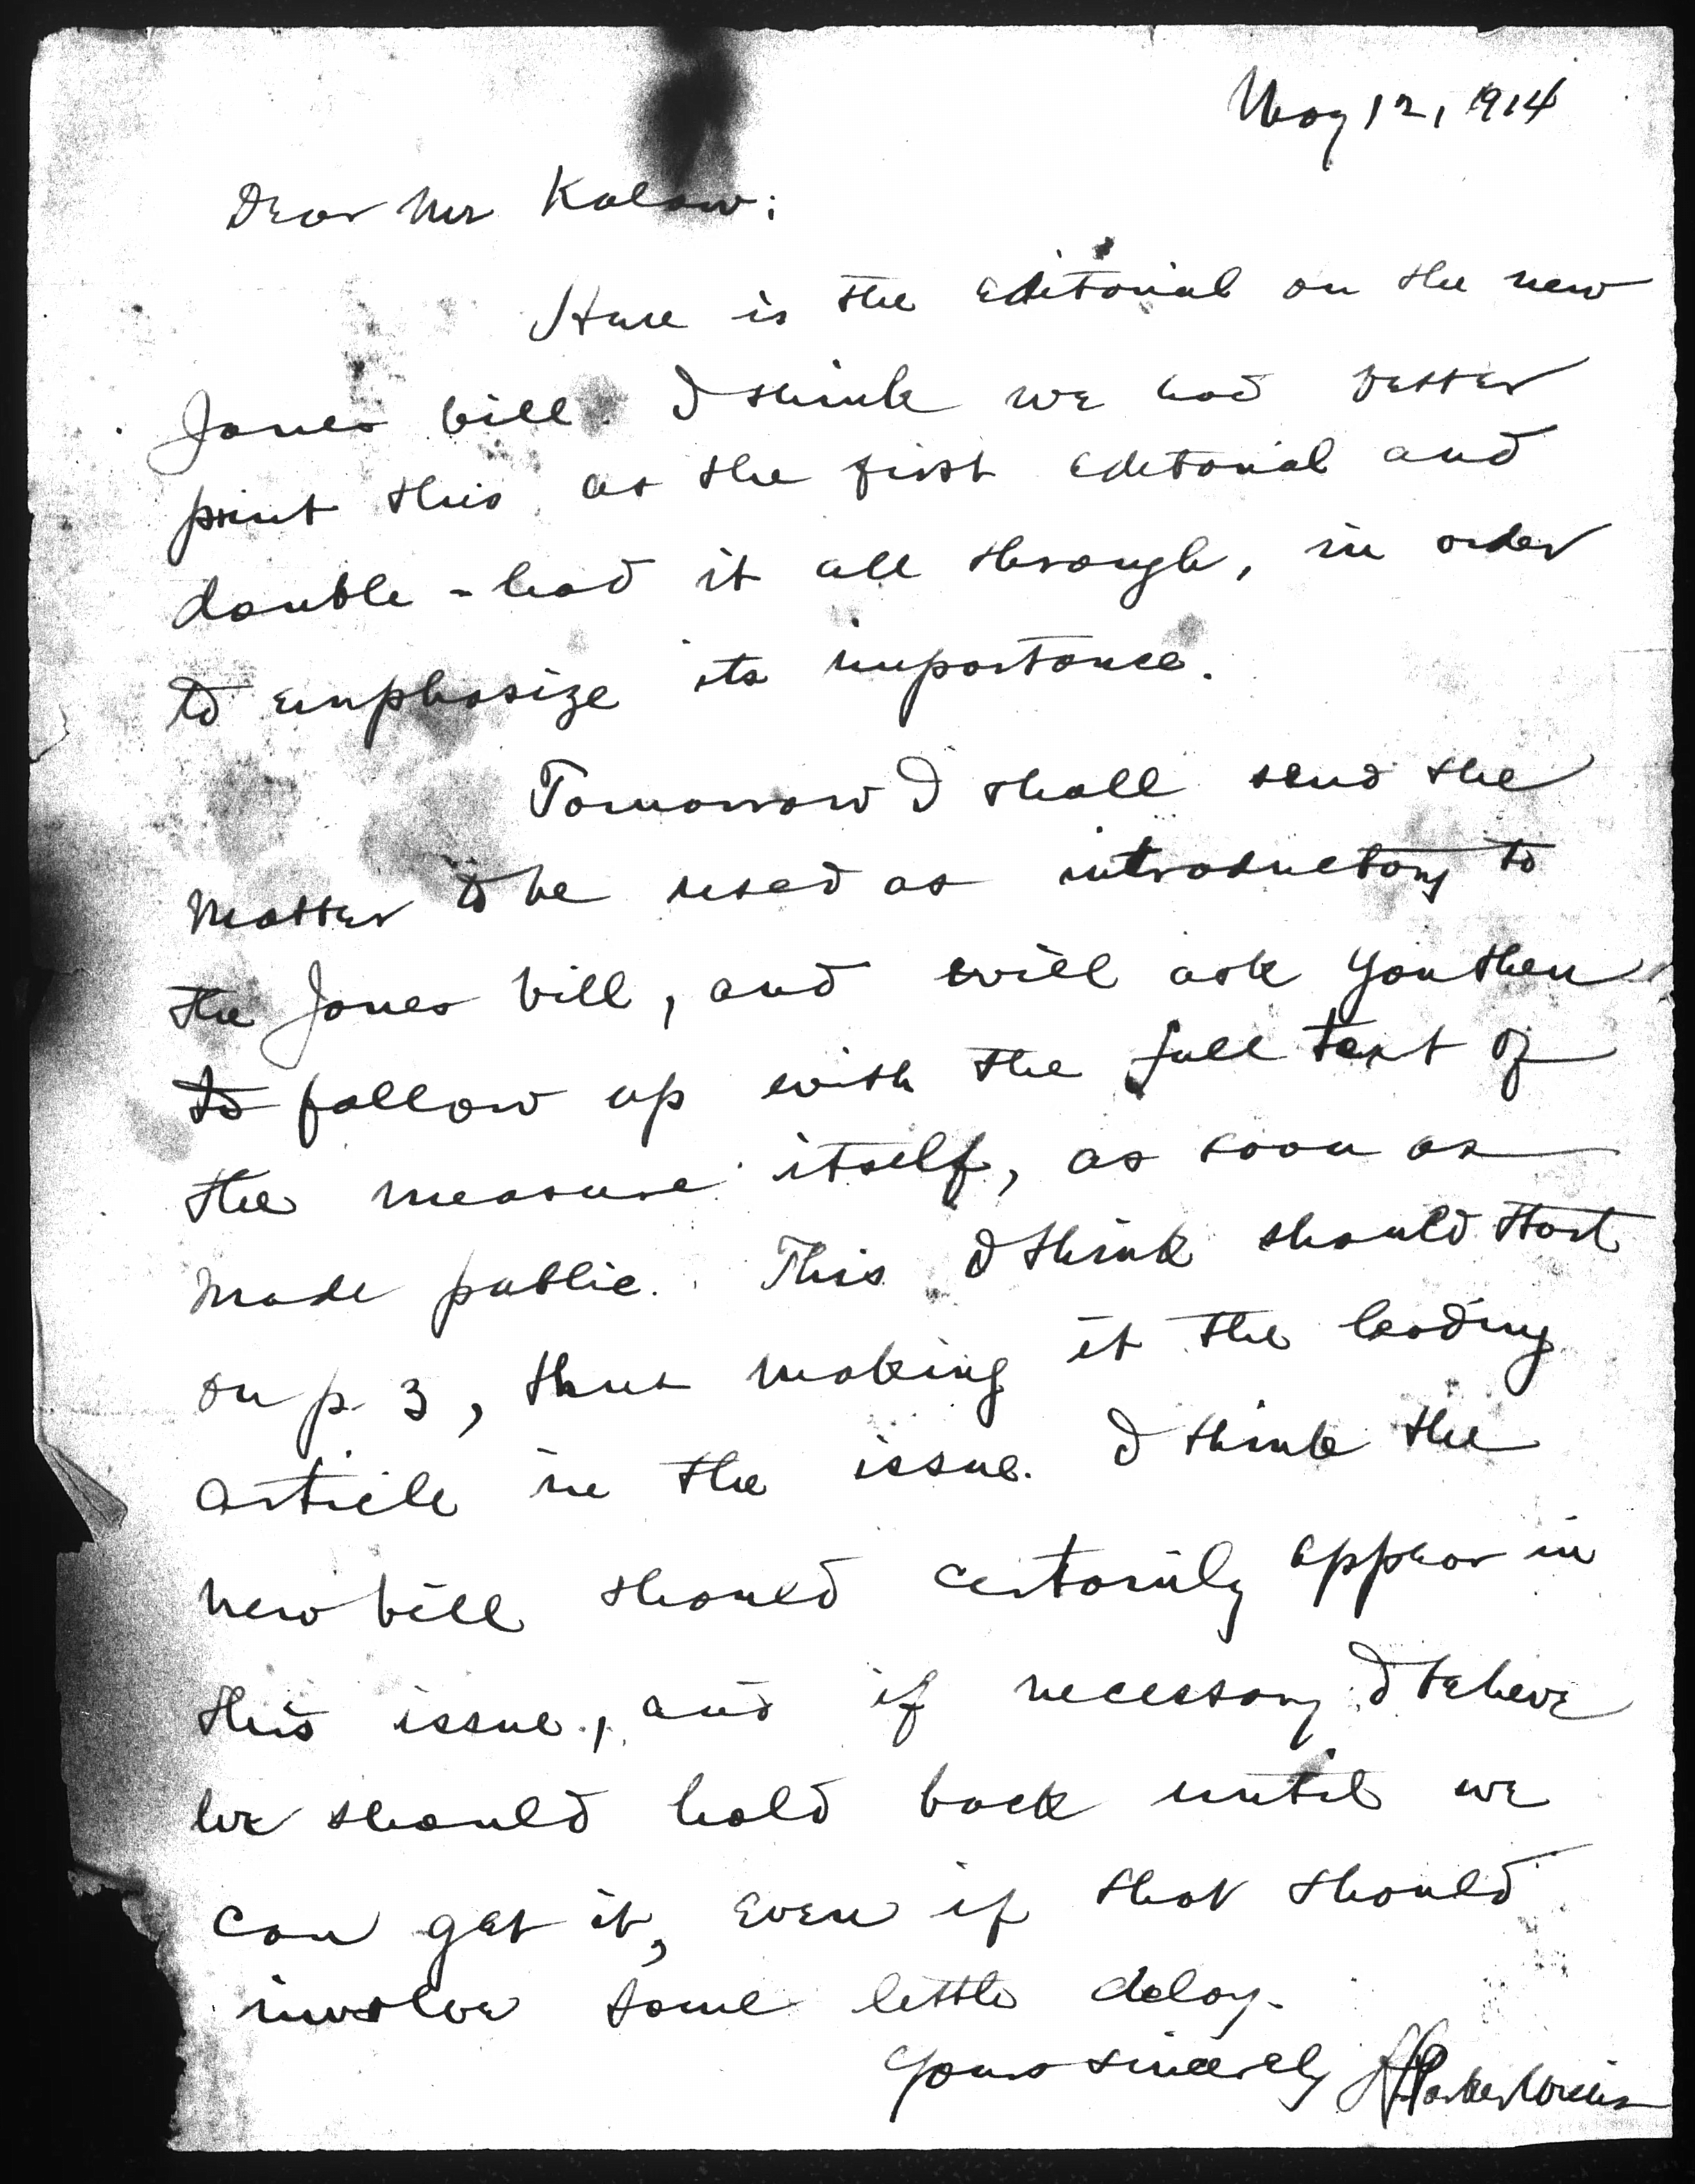 May 12, 1914
Dear Mr Kalaw:
Here is the editorial on the new
Jones bill. I think we had better
print this as the first editorial and
double-lead it all through, in order
to emphasize its importance.
Tomorrow I shall send the
matter to be used as introductory to
the Jones bill, and will ask you then
to follow up with the full text of
the measure itself, as soon as
made public. This I think should start
on p. 3, thus making it the leading
article in the issue. I think the
new bill should certainly appear in
this issue, and if necessary I believe
we should hold back until we
can get it, even if that should
involve some little delay.
Yours sincerely H Parker Willis